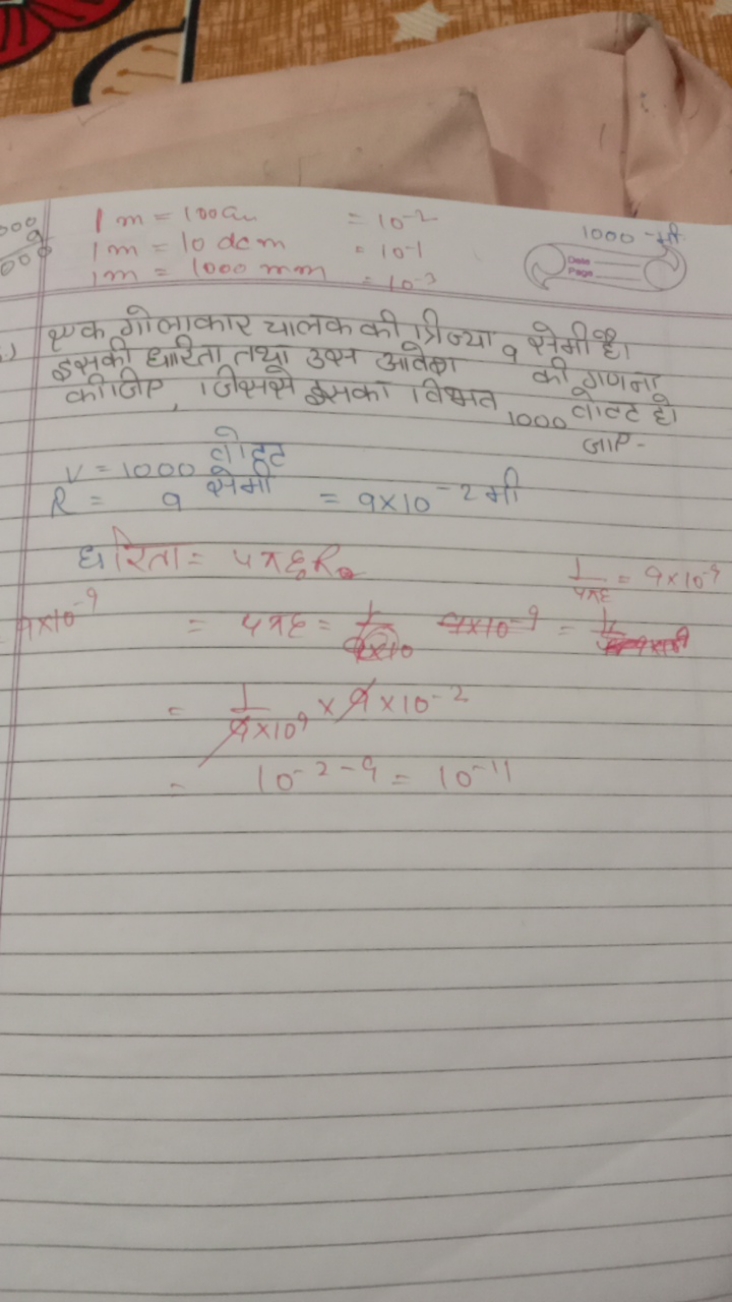 1 m = 100 cm = 10⁻²
1 m = 10 dcm = 10⁻¹
1m = 1000 mm = 10⁻³
1000 मी
Date
Page
000
9
000
एक गोलाकार चालक की त्रिज्या 9 सेमी है।
इसकी धारिता तथा उस आवेश की गणना
कीजिए, जिससे इसका विभव 1000 वोल्ट हो
जाए-
V = 1000 वोल्ट
R = 9 सेमी = 9×10⁻² मी
धारिता = 4πε₀R
1/4πε = 9×10⁹
9×10⁻⁹ = 4πε = 1/9×10
= 1/9×10⁹ × 9 × 10⁻²
= 10⁻²⁻⁹ = 10⁻¹¹